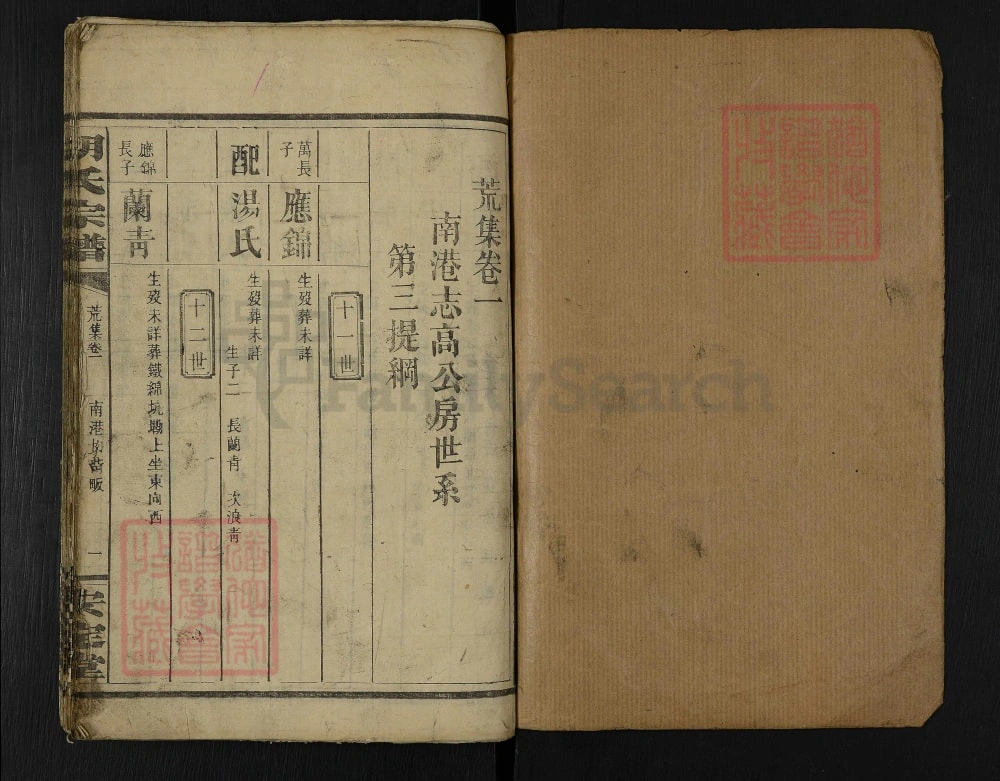 荒集卷一
南港志高公房世系
第三提綱
十一世
萬長
子
應錦
生歿葬未詳
配
湯氏
生歿葬未詳
生子二 長蘭青 次浪青
十二世
應錦
長子
蘭青
生歿未詳葬鐵綿坑塝上坐東向西
胡氏宗譜
荒集卷一
南港
一
安定堂
FamilySearch